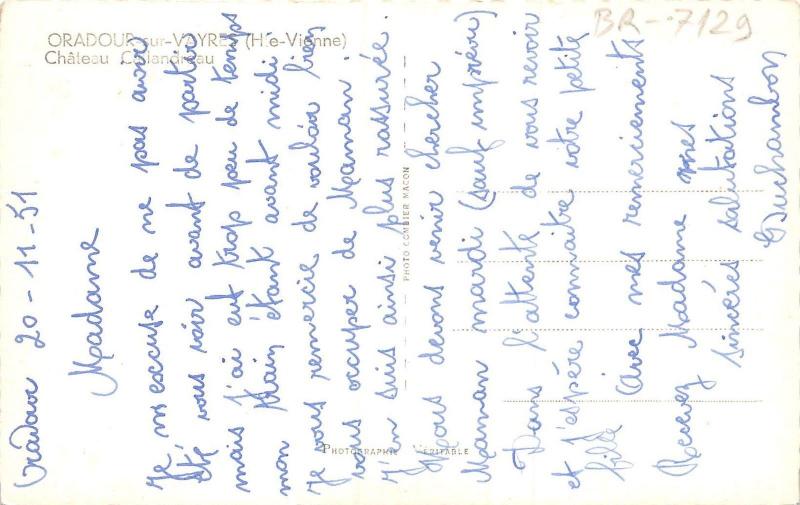 ORADOUR-sur-VAYRES (Hte-Vienne)
Château
BR-7129
PHOTO COMBIER MACON
PHOTOGRAPHIE VERITABLE
Oradour 20-11-51
Madame
Je m'excuse de ne pas avoir
été vous voir avant de partir
mais j'ai eut trop peu de temps
mon train étant avant midi
Je vous remercie de vouloir bien
vous occuper de Maman
J'en suis ainsi plus rassurée
Nous devons venir chercher
Maman mardi (sauf imprévu)
Dans l'attente de vous revoir
et j'espére connaitre votre petite
fille
Avec mes remerciements
Recevez Madame mes
sincères salutations
GDuchambon